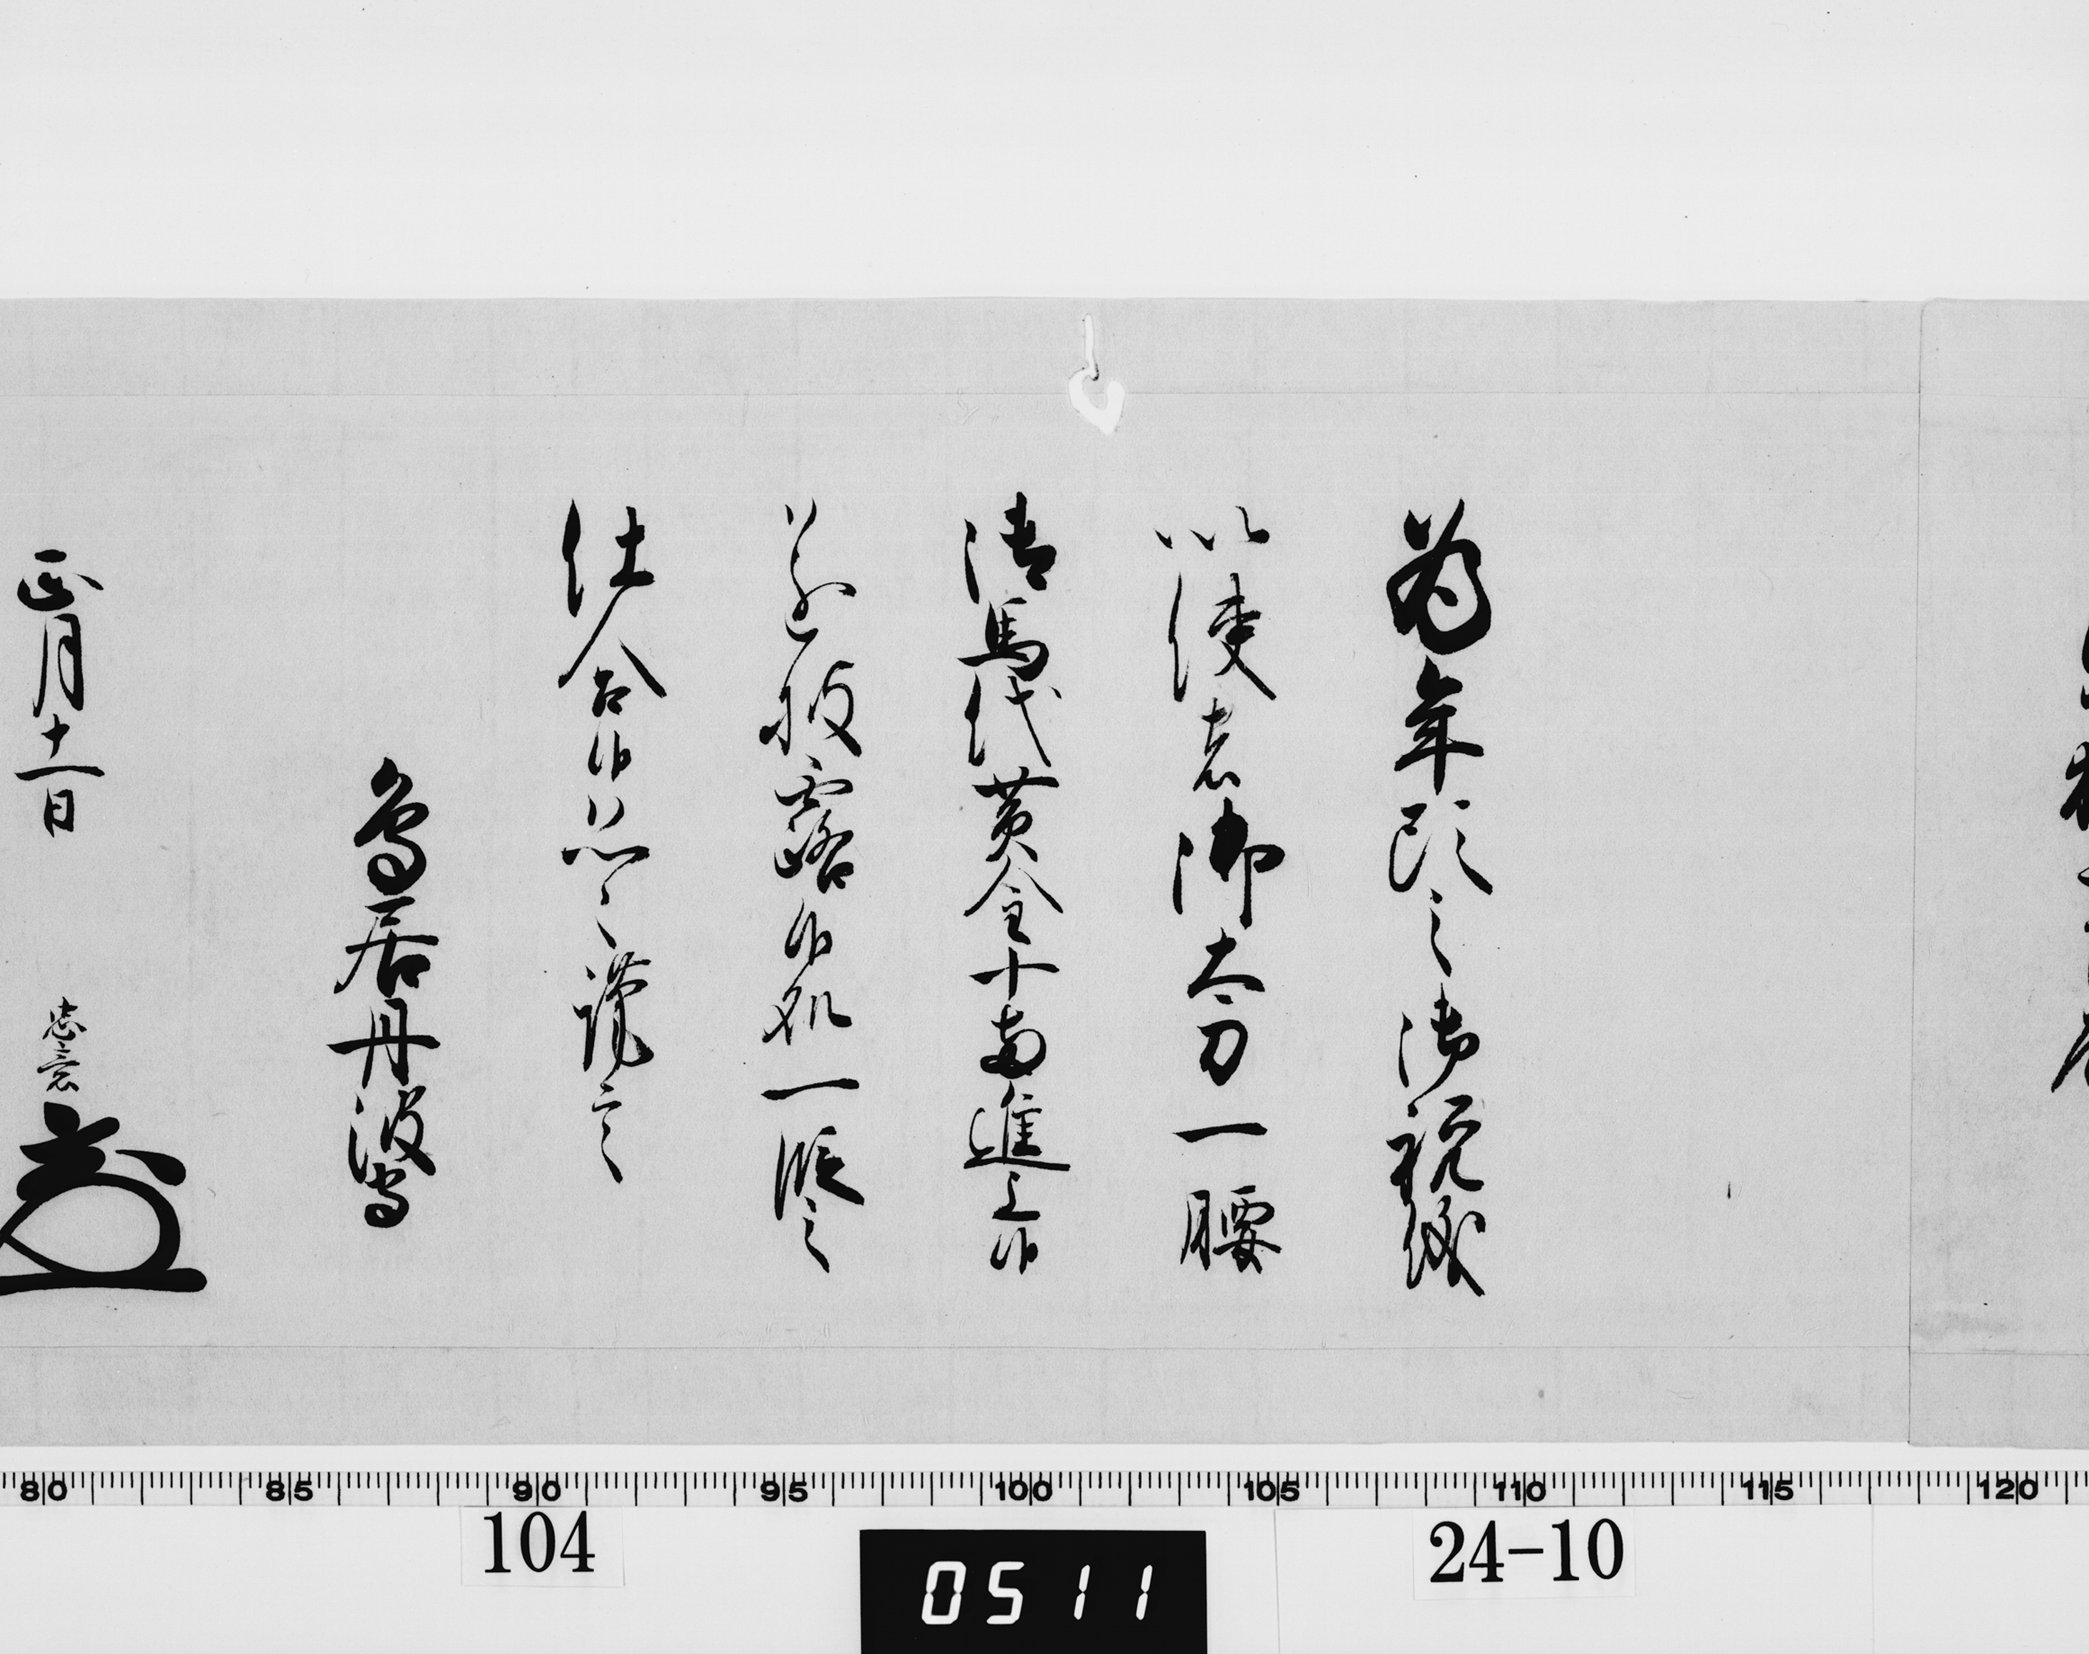 為年頭之御祝儀
以使者御太刀一腰
御馬代黄金十両進上候
遂披露候処一段之
仕合候恐々謹言
鳥居丹波守
正月十一日 忠意
80 85 90 95 100 105 110 115 120
104
0511
24-10